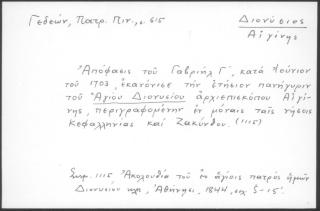 Γεδεών, Πατρ. Πιν., σ. 615
Διονύσιος
Αἰγίνης
Ἀπόφασις τοῦ Γαβριήλ Γ΄, κατά Ἰούνιον
τοῦ 1703, ἐκανόνισε τήν ἐτήσιον πανήγυριν
τοῦ "Ἁγίου Διονυσίου ἀρχιεπισκόπου Αἰγί-
νης, περιγραφομένην ἐν μόναις ταῖς νήσοις
Κεφαλληνίας καί Ζακύνθου. (1115)
1115 Ἀκολουθία τοῦ ἐν ἁγίοις πατρός ἡμῶν
Διονυσίου κλπ., Ἀθήνησι, 1844, σελ. ς-ιε΄.